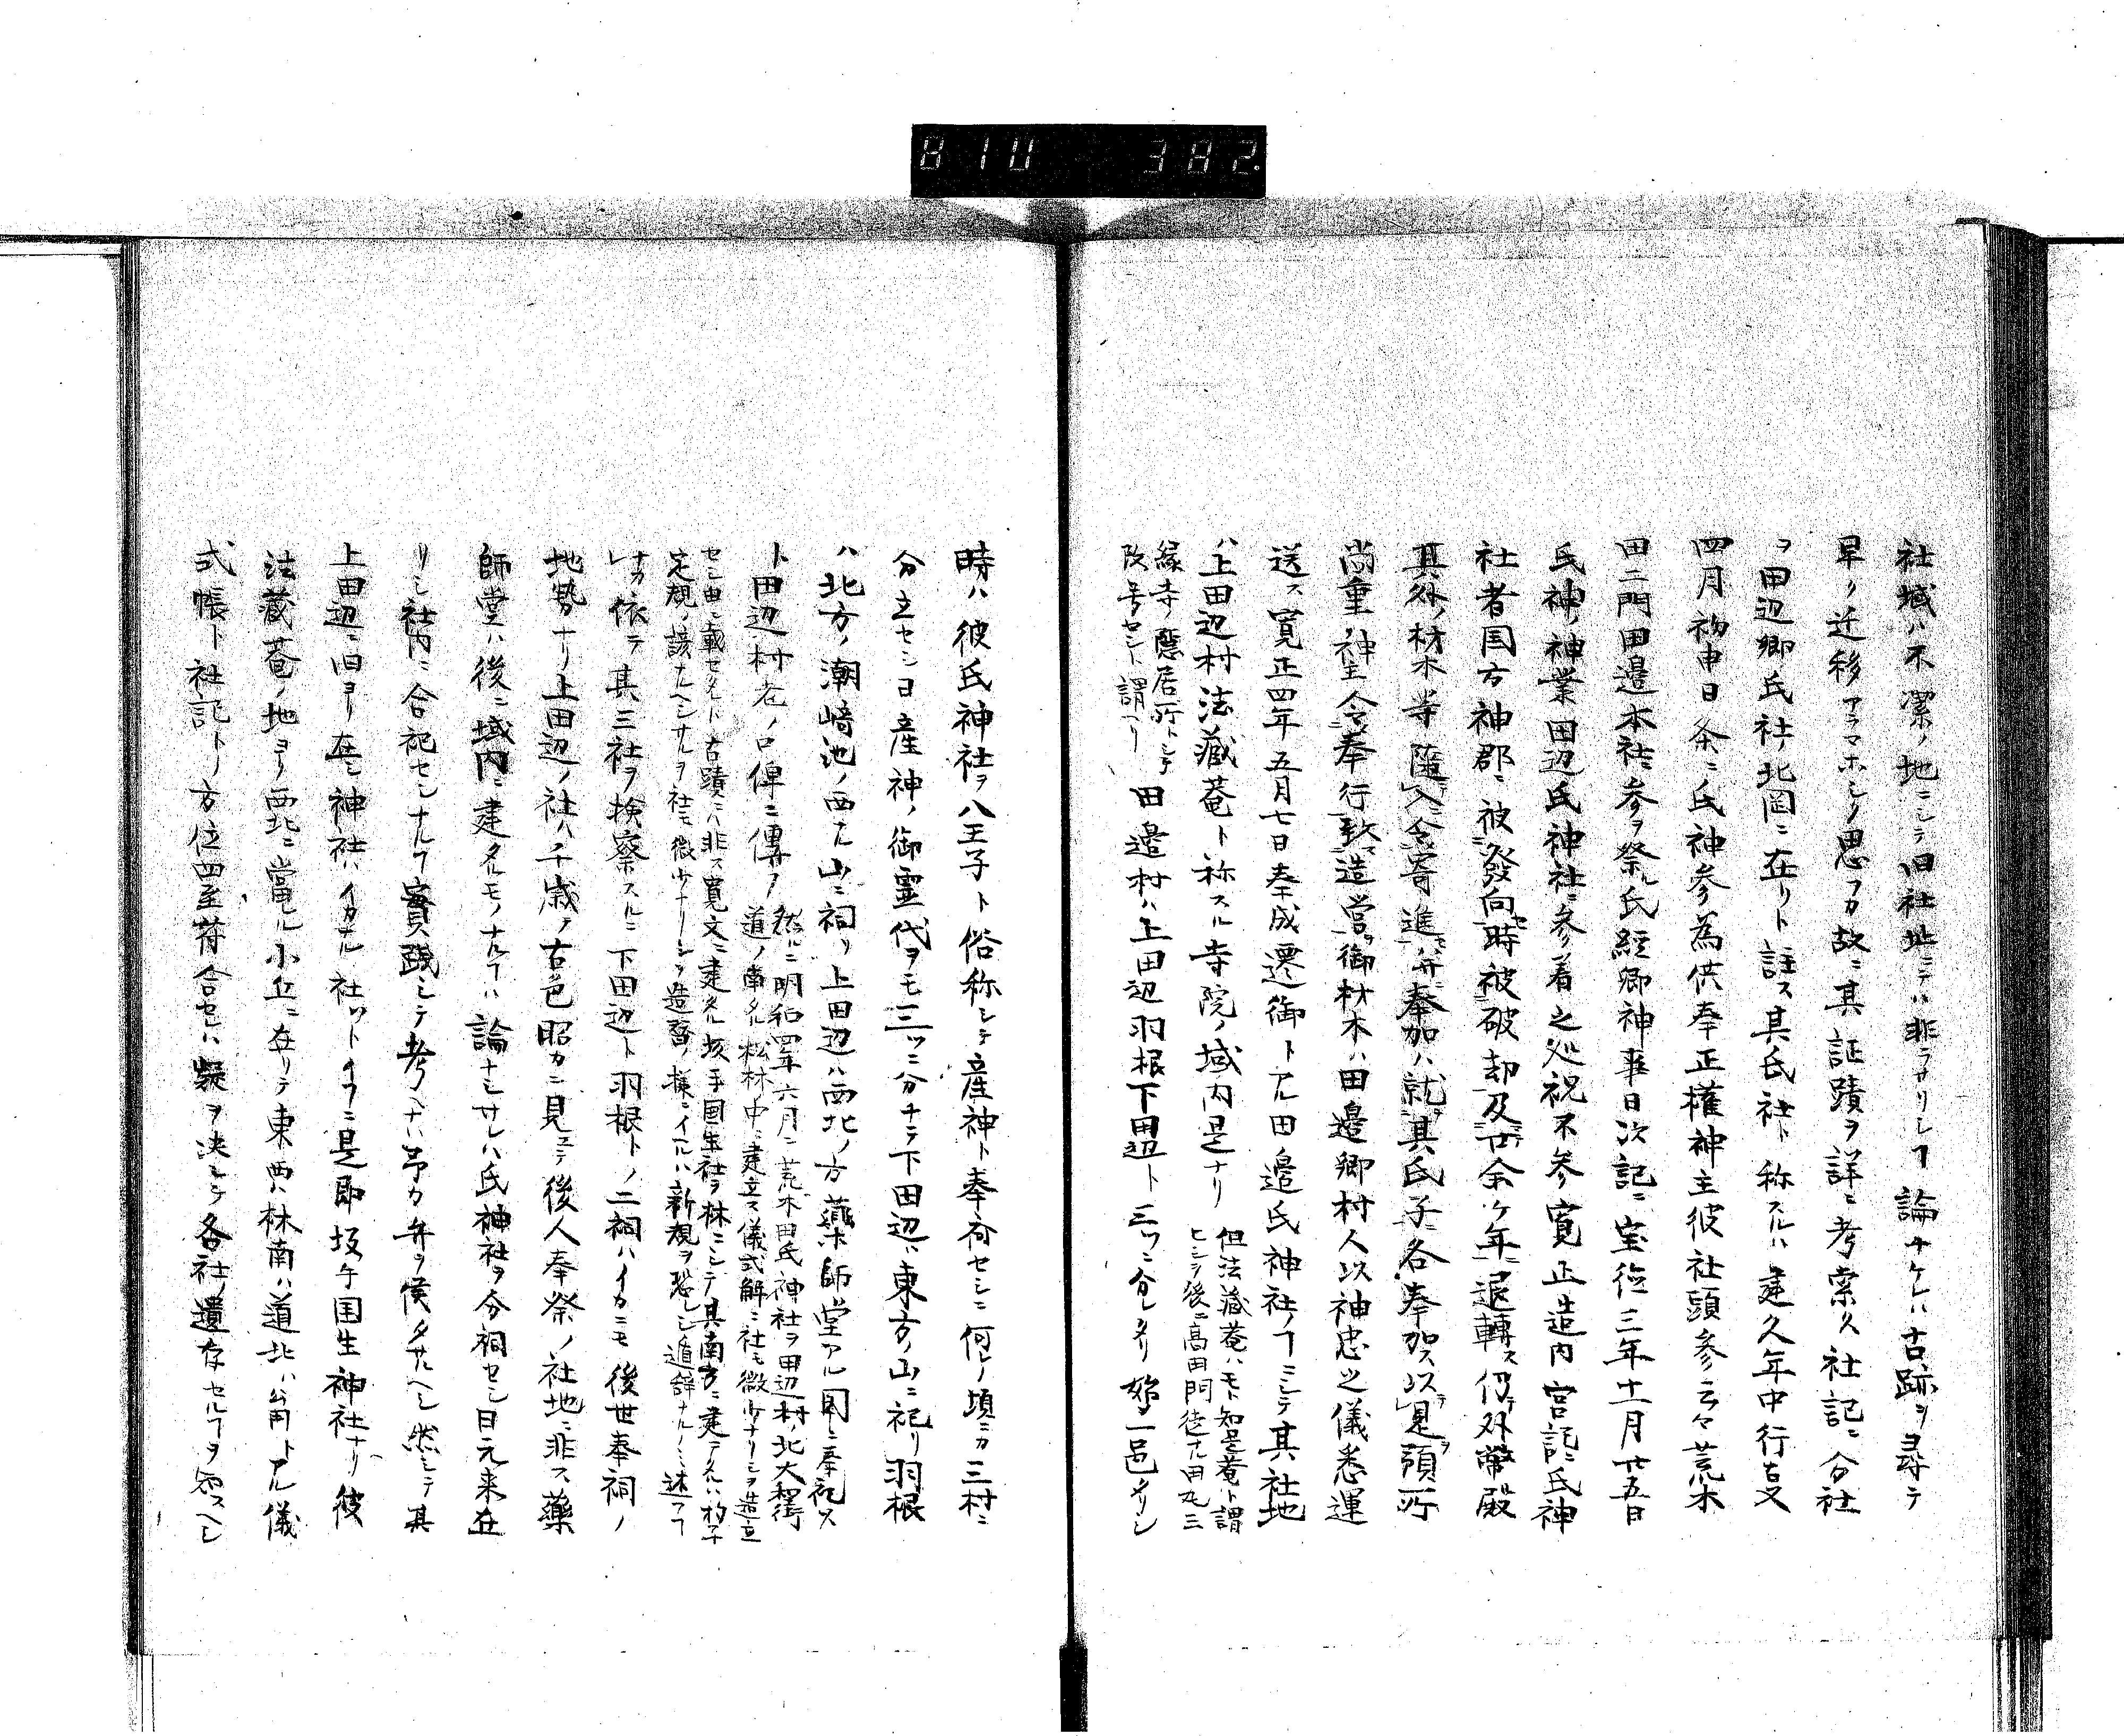 810 382
社域ハ不潔ノ地ニシテ旧社地ニテハ非ラサリシヿ論ナケレハ古跡ヲ尋テ
早ク迁移アラマホシク思フカ故ニ其証蹟ヲ詳ニ考索ス社記ニ分社
ヲ田辺郷氏社ノ北圀ニ在リト註ス其氏社ト称スルハ建久年中行古又
四月初申日条ニ氏神参為供奉正権神主彼社頭参云々荒木
田二門田邉本社ニ参ヲ祭ル氏経卿神事日次記ニ宝徳三年十一月廿五日
氏神ノ神業田辺氏神社ニ参着之処祝不参寛正造内宮記ニ氏神
社者国方神郡ニ被發向時被破却及廿余ケ年ニ退轉ス仍テ外幣殿
其外ノ材木等隨入ニ令寄進ハ并奉加ハ就其氏子ニ各奉加ス以見頭所
尚重ノ神主令奉行致造営御材木ハ田邉郷村人以神忠之儀悉運
送ス寛正四年五月七日奉成遷御トアル田邉氏神社ノヿニシテ其社地
ハ上田辺村法蔵菴ト称スル寺院ノ域内是ナリ 但法蔵菴ハモト知是菴ト謂
ヒシヲ後ニ高田門徒ナル田丸三
縁寺ノ隱居所トシテ
改号セシト謂ヘリ 田邉村ハ上田辺羽根下田辺ト三ツニ分レタリ始ヲ一邑タリシ
時ハ彼氏神社ヲ八王子ト俗称シテ産神ト奉斎セシニ何レノ頃ニカ三村ニ
分立セシ日産神ノ御霊代ヲモ三ツニ分チテ下田辺ハ東方ノ山ニ祀リ羽根
ハ北方ノ潮﨑池ノ西ナル山ニ祠リ上田辺ハ西北ノ方藥師堂アル圀ニ奉祀ス
ト田辺村老ノ口俾ニ傳フ 然ルニ明和四年六月ニ荒木田氏神社ヲ田辺村ノ北大御
道ノ南ナル松林中ニ建立ス儀式解ニ社モ微少ナリシヲ造立
セシ由ニ載セタレト古蹟ニハ非ス寛文ニ建タル坂手国生社ヲ林ニシテ其南方ニ建テタルハ杓子
定規ノ談ナルヘシサルヲ社モ微少ナリシヲ造替ノ様ニイヘルハ新規ヲ恐レシ遁辞ナルノミ述フヿ
ナカレ 依テ其三社ヲ検察スルニ下田辺ト羽根トノ二祠ハイカニモ後世奉祠ノ
地勢ナリ上田辺ノ社ハ千歳ノ古色昭カニ見ヱテ後人奉祭ノ社地ニ非ス藥
師堂ハ後ニ域内ニ建タルモノナルヿハ論ナシサレハ氏神社ヲ分祠セシ日元来在
リシ社内ニ合祀セシナルヿ實踐シテ考ヘナハ予カ弁ヲ俟タサルヘシ然シテ其
上田辺ニ旧ヨリ在シ神社ハイカナル社ソトイフニ是即坂手国生神社ナリ彼
法蔵菴ノ地ヨリ西北ニ當ル小丘ニ在リテ東西ハ林南ハ道北ハ公田トアル儀
式帳ト社記トノ方位四至苻合セレハ疑ヲ决シテ各社ノ遺存セルヿヲ知スヘシ